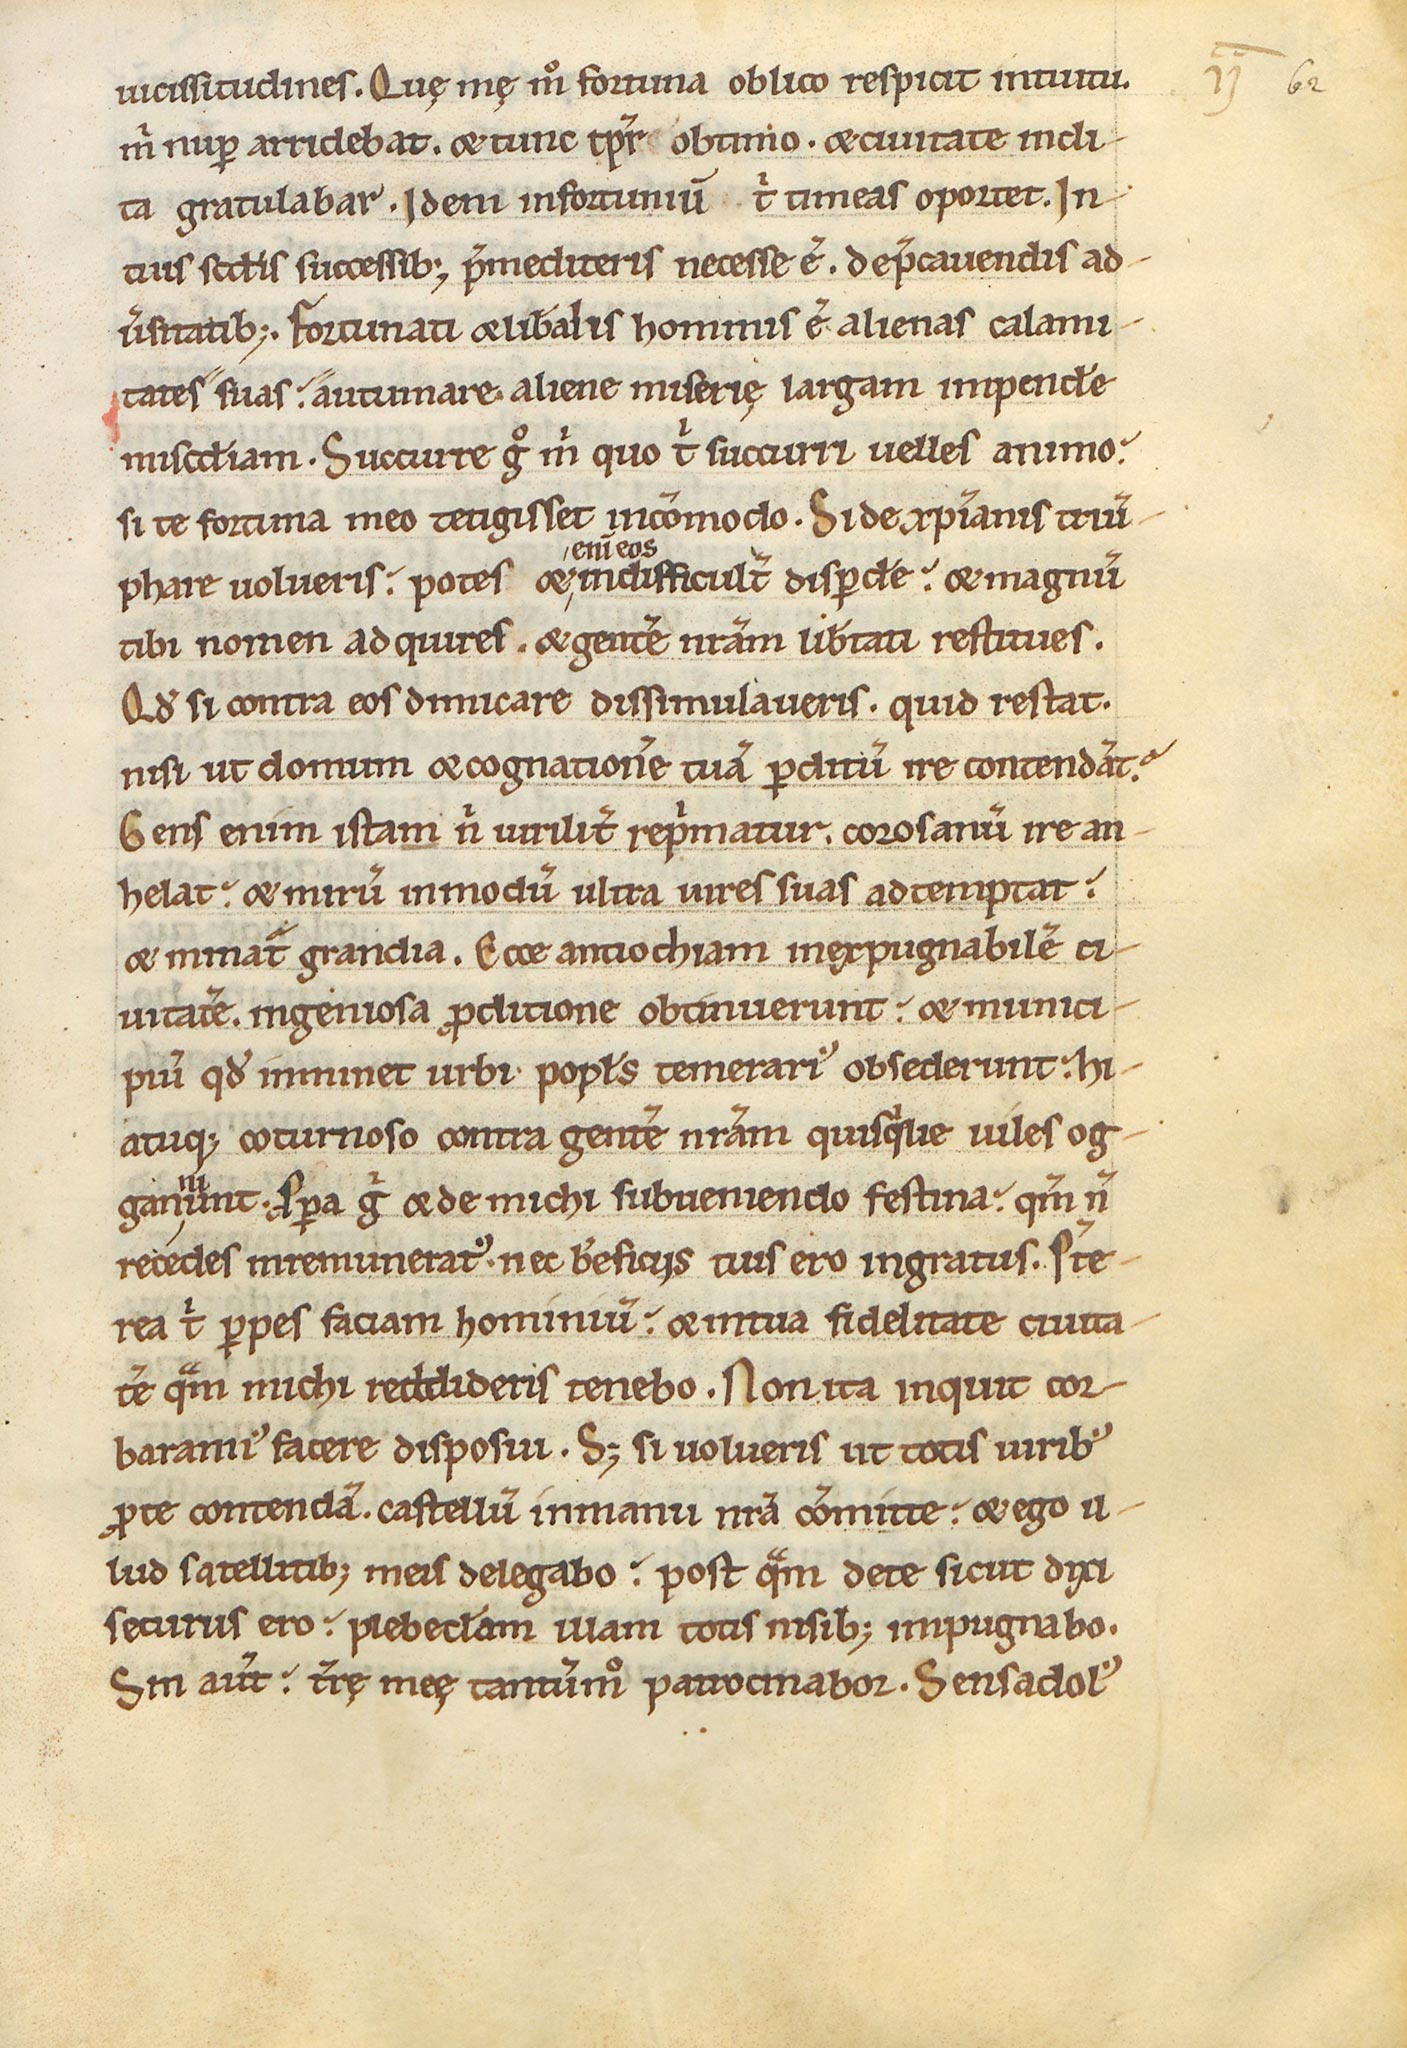 ij 62
uicissitudines. Quę mę m̊ fortuna oblico respicit intuitu.
m̓ nup̱ arridebat. & tunc tp̄r obtimo. & ciuitate incli-
ta gratulabar̓. Idem infortuniū t̓ timeas oportet. In
tuis scd̓is successib; p̄mediteris necesse ē. de p̄cauendis ad-
ūsitatib;. Fortunati & lib̓alis hominis ē alienas calami-
tates suas autumare. aliene miserię largam impend̓e
misc̓diam. Succurre g̊ m̓ quo t̓ succurri uelles animo.
si te fortuna meo tetigisset incōmodo. Si de xp̄ianis triū-
phare uolueris. potes & enī eos indifficult̄ disp̱d̓e. & magnū
tibi nomen adquires. & gentē nr̄am lib̓tati restitues.
Qd̓ si contra eos dimicare dissimulaueris. quid restat.
nisi ut domum & cognationē tuā p̱ditū ire contendāt.
Gens enim istam n̓ uirilit̄ rep̓matur. corosanū ire an-
helat. & mirū inmodū ultra uires suas adtemptat.
& minat̄ grandia. Ecce antiochiam inexpugnabilē ci-
uitatē. ingeniosa ꝓditione obtinuerunt. & munici-
piū qd̓ imminet urbi popl̓s temerari᾽ obsederunt. hi-
atuq; coturnoso contra gentē nr̄am quisq̓lie uiles og-
ganniunt. Sp̱a g̓ & de michi subueniendo festina. qm̄ n̄
recedes inremunerat᾽. nec b̓eficijs tuis ero ingratus. Pt̄e-
rea t̓ p̱pes faciam hominiū. & intua fidelitate ciuita-
tē qᵃm michi reddideris tenebo. Non ita inquit cor-
barami᾽ facere disposui. S; si uolueris ut totis uirib᾽
ꝓte contendā. castellū inmanu nr̄a cōmitte. & ego il-
lud satellitib; meis delegabo. post qᵃm dete sicut dixi
securus ero. plebeclam illam totis nisib; impugnabo.
Sin aut̄. tr̄ę meę tantūm̊ patrocinabor. Sensadol᾽